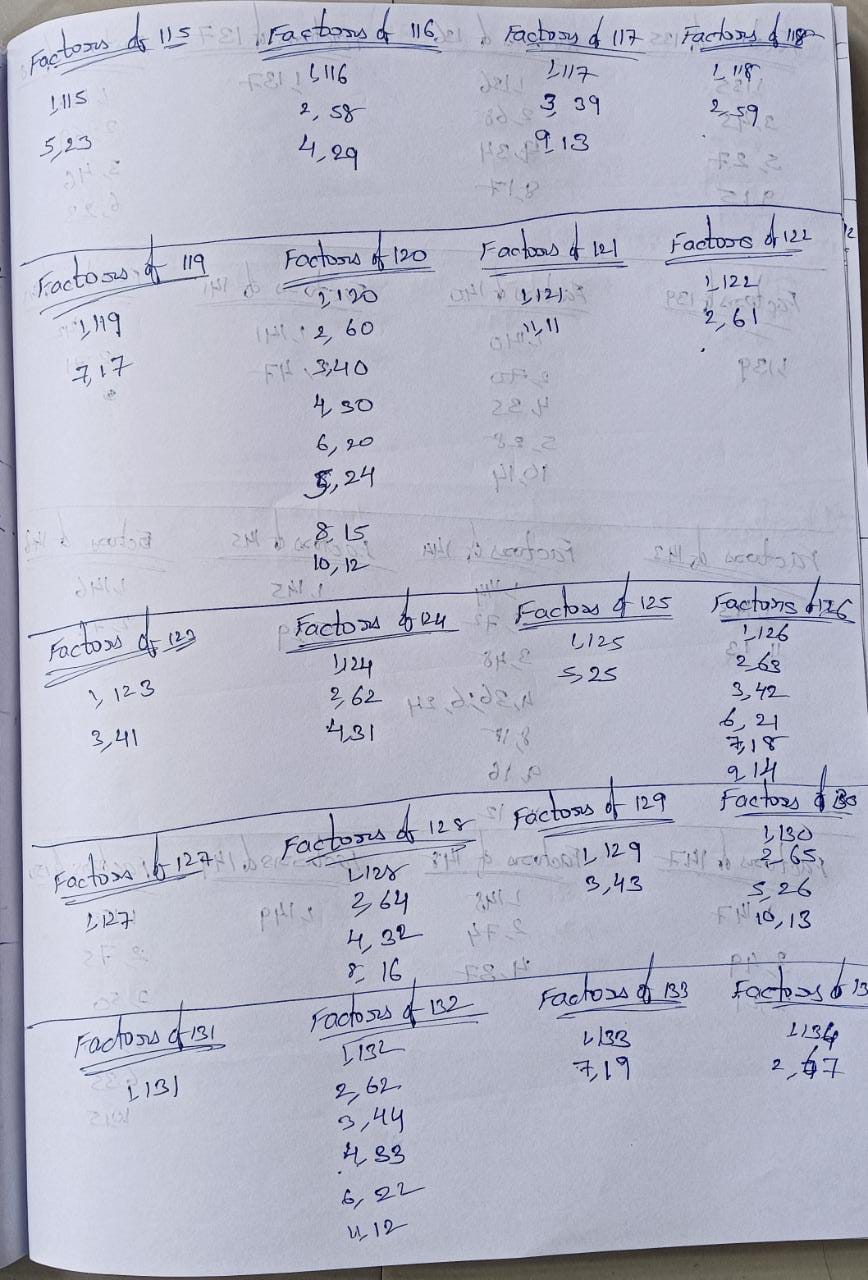 Factors of 115
1,115
5,23
Factors of 116
1,116
2, 58
4, 29
Factors of 117
1,117
3, 39
9,13
Factors of 118
1, 118
2, 59
Factors of 119
1,119
7,17
Factors of 120
1,120
2, 60
3,40
4, 30
6, 20
5, 24
8, 15
10, 12
Factors of 121
1,121
11,11
Factors of 122
1,122
2, 61
Factors of 123
1, 123
3,41
Factors of 124
1,124
2,62
4,31
Factors of 125
1,125
5,25
Factors of 126
1,126
2,63
3,42
6, 21
7,18
9,14
Factors of 127
1,127
Factors of 128
1,128
2,64
4, 32
8, 16
Factors of 129
1, 129
3,43
Factors of 130
1,130
2,65
5, 26
10,13
Factors of 131
1,131
Factors of 132
1,132
2,62
3,44
4,33
6, 22
11,12
Factors of 133
1,133
7,19
Factors of 13
1,134
2,67